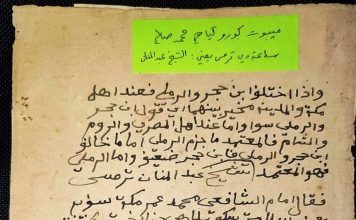 ميبوت كورو كياهي محمد صالح
سماعة دي ترمس يعني : الشيخ عبد المنان
واذا اختلفوا ابن حجر والرملي فعند اهل
مكة والمدينة مخير بينهما اي قول ابن حجر
والرملي سوا واما عند اهل المصري والروم
والشام فالمعتمد ما جزم الرملي اما ما خالفو
ابن حجر والرملي فابن حجر ضعيف واما الرملي
فهو المعتمد (شيخ عبد المنان ترمسي
فقال امام الشافعي محمد عمر مكت سوڽر